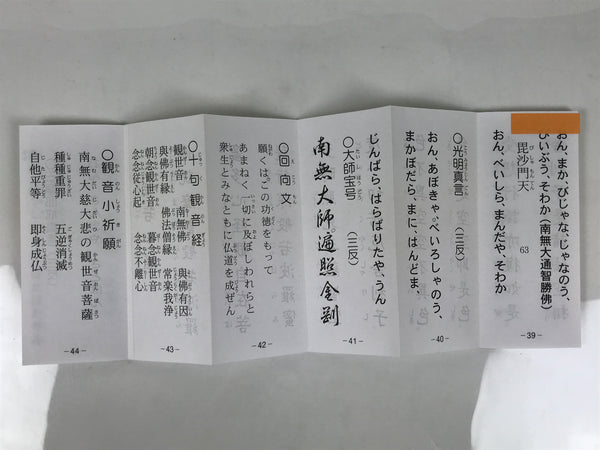 おん、まか、びじゃな、じゃなのう、
びいぶう、そわか（南無大通智勝佛）
63
毘沙門天
おん、べいしら、まんだや、そわか
－39－
○光明真言（三反）
おん、あぼきゃ、べいろしゃのう、
まかぼだら、まに、はんどま、
－40－
じんばら、はらばりたや、うん
○大師宝号（三反）
南無大師遍照金剛
－41－
○回向文
願くはこの功徳をもって
あまねく一切に及ぼしわれらと
衆生とみなともに仏道を成ぜん
－42－
○十句観音経
観世音　南無佛　與佛有因
與佛有縁　佛法僧縁　常楽我浄
朝念観世音　暮念観世音
念念従心起　念念不離心
－43－
○観音小祈願
南無大慈大悲の観世音菩薩
種種重罪　五逆消滅
自他平等　即身成仏
－44－